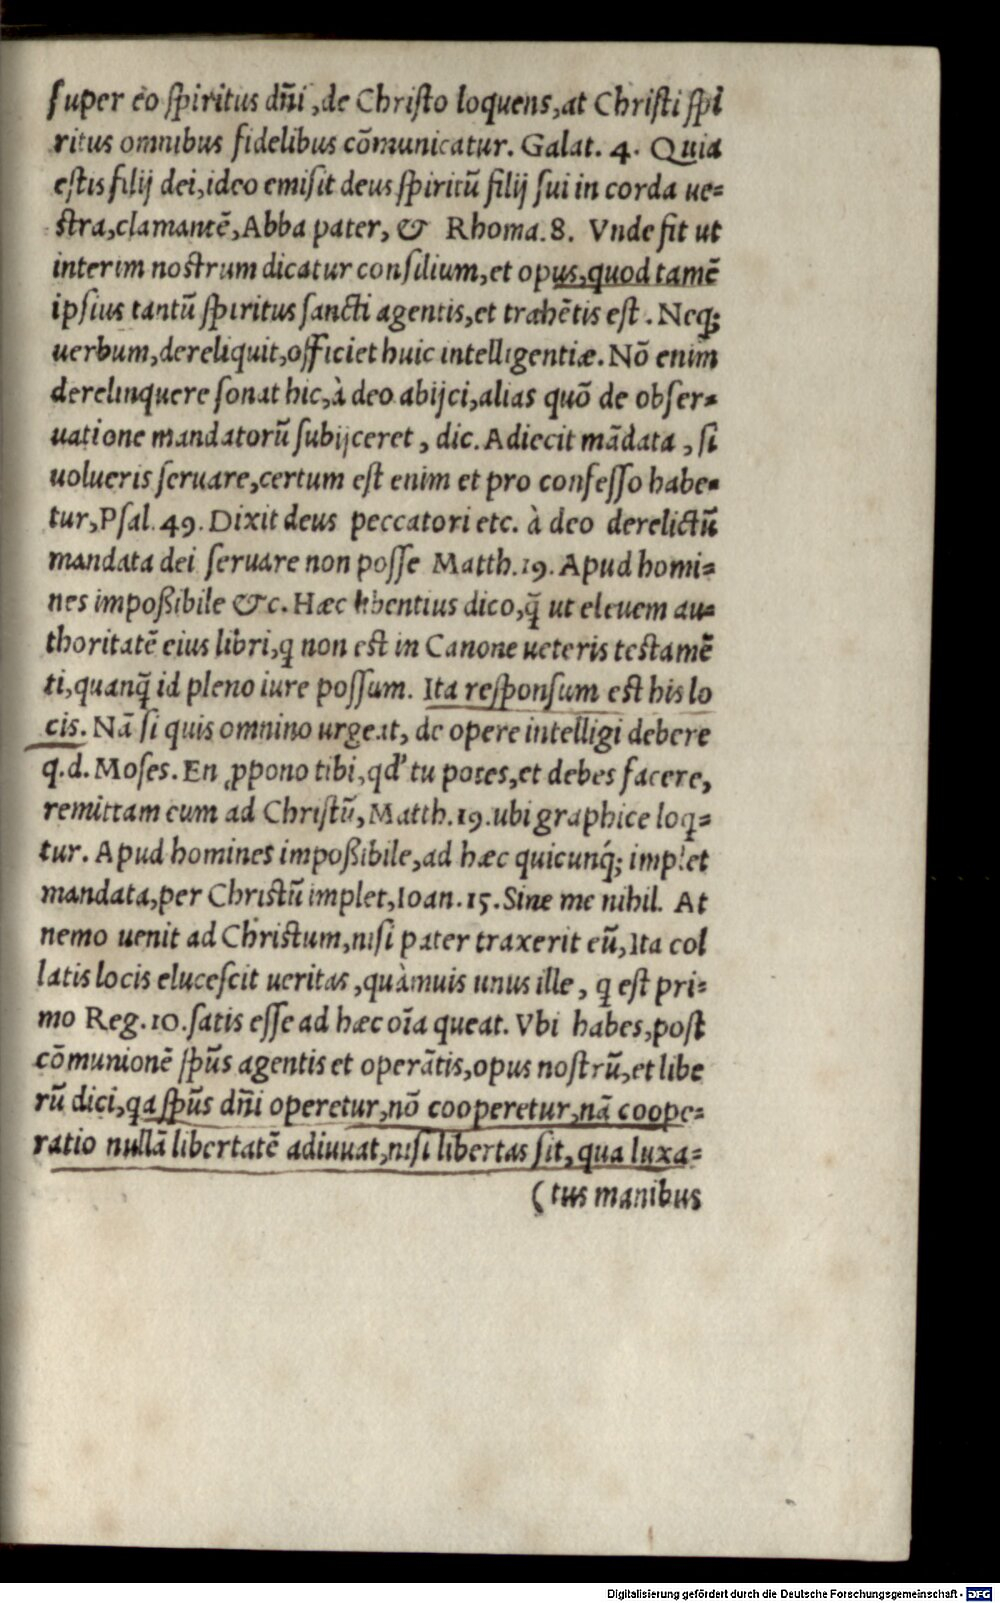 super eo spiritus dñi, de Christo loquens, at Christi spi
ritus omnibus fidelibus cõmunicatur. Galat. 4. Quia
estis filij dei, ideo emisit deus spiritũ filij sui in corda ue=
stra, clamantẽ, Abba pater, & Rhoma. 8. Vnde fit ut
interim nostrum dicatur consilium, et opus, quod tamẽ
ipsius tantũ spiritus sancti agentis, et trahẽtis est. Neq;
uerbum, dereliquit, officiet huic intelligentiæ. Nõ enim
derelinquere sonat hic, à deo abijci, alias quõ de obser=
uatione mandatorũ subijceret, dic. Adiecit mãdata, si
uolueris seruare, certum est enim et pro confesso habe=
tur, Psal. 49. Dixit deus peccatori etc. à deo derelictũ
mandata dei seruare non posse Matth. 19. Apud homi=
nes impoßibile &c. Hæc libentius dico, q̃ ut eleuem au=
thoritatẽ eius libri, q non est in Canone ueteris testamẽ
ti, quanq̃ id pleno iure possum. Ita responsum est his lo
cis. Nã si quis omnino urgeat, de opere intelligi debere
q.d. Moses. En ꝓpono tibi, qd' tu potes, et debes facere,
remittam eum ad Christũ, Matth. 19. ubi graphice loq=
tur. Apud homines impoßibile, ad hæc quicunq́; implet
mandata, per Christũ implet, Ioan. 15. Sine me nihil. At
nemo uenit ad Christum, nisi pater traxerit eũ, Ita col
latis locis elucescit ueritas, quàmuis unus ille, q est pri=
mo Reg. 10. satis esse ad hæc oĩa queat. Vbi habes, post
cõmunionẽ sp̃us agentis et operãtis, opus nostrũ, et libe
rũ dici, qa sp̃us dñi operetur, nõ cooperetur, nã coope=
ratio nullã libertatẽ adiuuat, nisi libertas sit, qua luxa=
(tus manibus
Digitalisierung gefördert durch die Deutsche Forschungsgemeinschaft - DFG